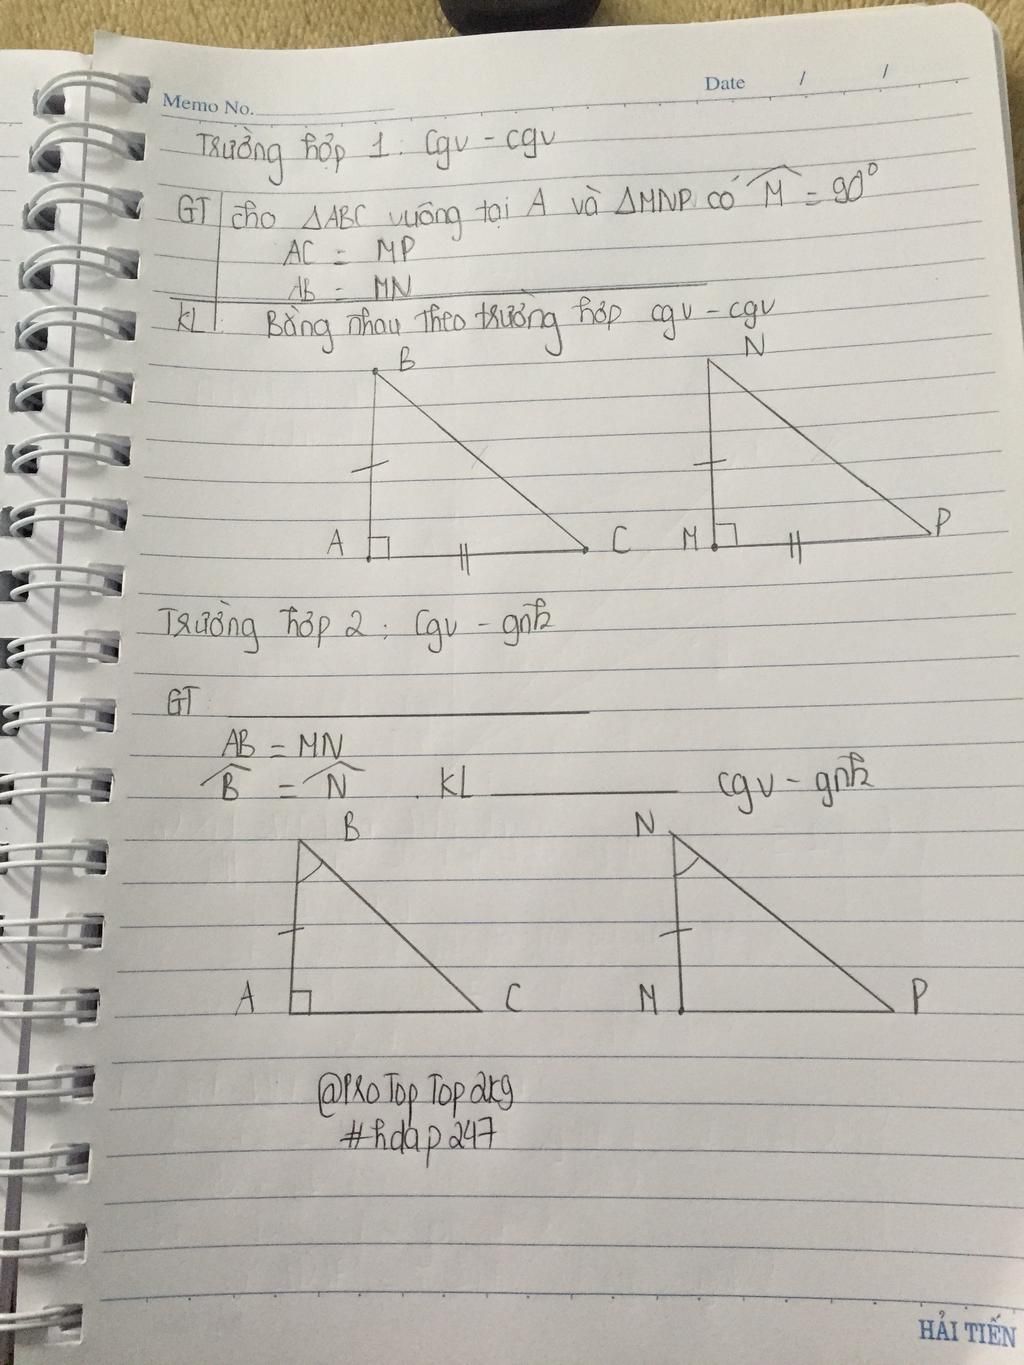 Memo No.
Date / /
Trường hợp 1: Cgv - cgv
GT cho ΔABC vuông tại A và ΔMNP có M̂ = 90°
AC = MP
AB = MN
KL: Bằng nhau theo trường hợp cgv - cgv
B N
A C M P
Trường hợp 2: Cgv - gnk
GT
AB = MN
B̂ = N̂ . KL Cgv - gnk
B N
A C M P
@PROTopTop2k9
#hdap247
HẢI TIẾN